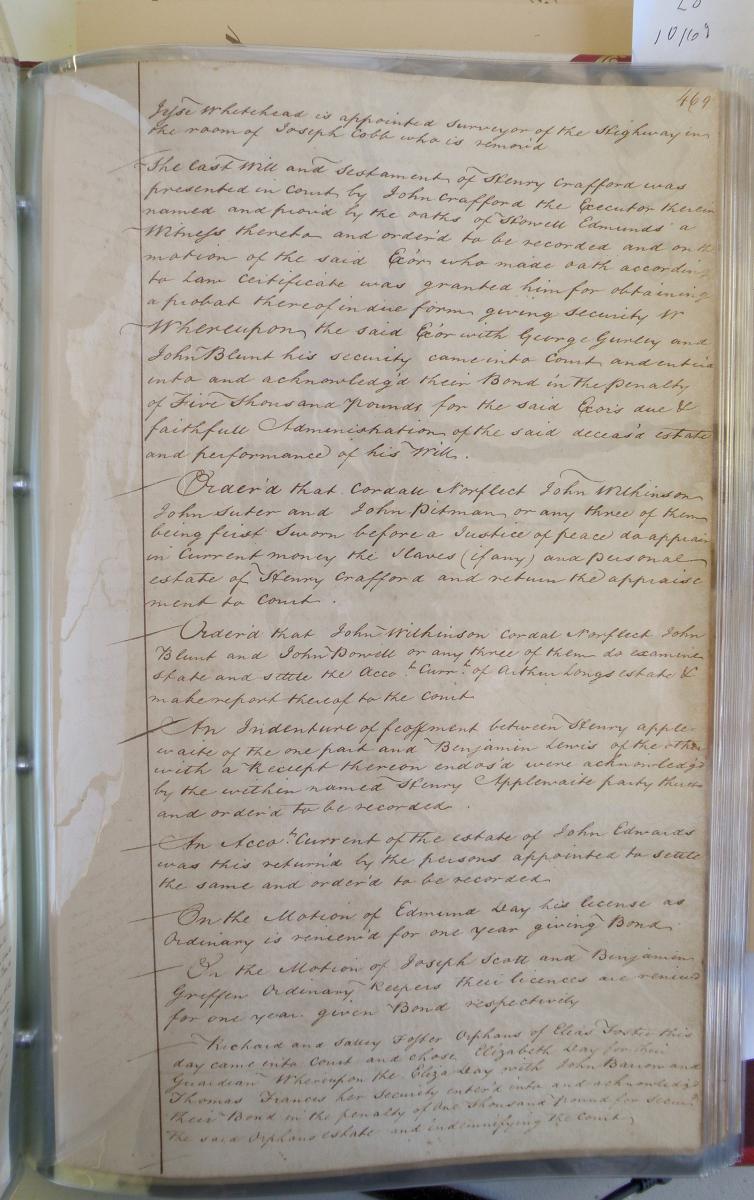 10/68
469
Whitehead is appointed Surveyor of the Highway in
the room of Joseph Cobb who is remov'd
The Last Will and Testament of Henry Crafford was
presented in Court by John Crafford the Executor therein
named and prov'd by the oaths of Howell Edmunds a
Witness thereto and order'd to be recorded and on the
motion of the said Exor who made oath according
to Law Certificate was granted him for obtaining
a probat thereof in due form giving Security
Whereupon the said Exor with George Gurley and
John Blunt his security came into Court and enter'd
into and acknowledg'd their Bond in the Penalty
of Five Thousand Pounds for the said Exors due &
faithfull Administration of the said deceas'd estate
and performance of his Will.
Order'd that Cordall Norflect John Wilkinson
John Suter and John Pitman or any three of them
being first Sworn before a Justice of peace do appraise
in Current money the Slaves (if any) and Personal
estate of Henry Crafford and return the appraise
ment to Court.
Order'd that John Wilkinson Cordal Norflect John
Blunt and John Powell or any three of them do examine
state and settle the Acco.t Curr.t of Arthur Longs estate &
make report thereof to the Court
An Indenture of feoffment between Henry apple-
waite of the one part and Benjamin Lewis of the other
with a Receipt thereon endos'd were acknowledg'd
by the within named Henry Applewaite party thereto
and order'd to be recorded.
An Acco.t Current of the estate of John Edwards
was this return'd by the persons appointed to settle
the same and order'd to be recorded
On the Motion of Edmund Day his license as
Ordinary is renew'd for one year giving Bond
On the Motion of Joseph Scott and Benjamin
Griffen Ordinary Keepers their licences are renew'd
for one year given Bond respectively
Richard and Salley Foster Orphans of Elias Foster this
day came into Court and chose Elizabeth Day for their
Guardian Whereupon the Eliza Day with John Barrow and
Thomas Frances her security enter'd into and acknowledg'd
their Bond in the penalty of One Thousand Pound for
the said Orphans estate and indemnifying the Court